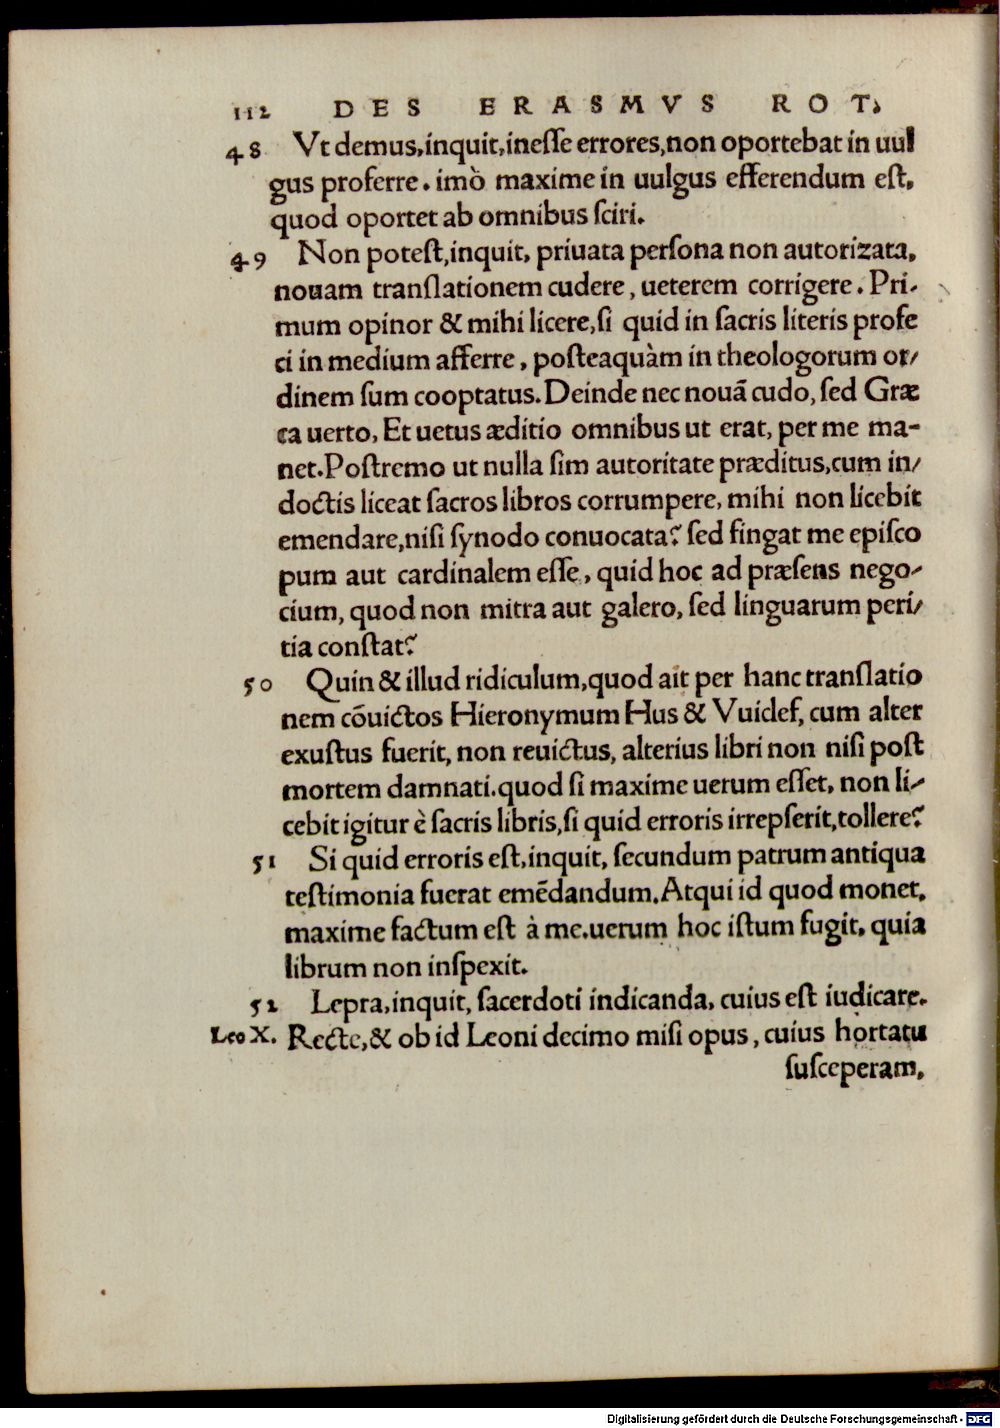 112 DES ERASMVS ROT.
48 Vt demus, inquit, inesſe errores, non oportebat in uul
gus proferre. imò maxime in uulgus efferendum eſt,
quod oportet ab omnibus ſciri.
49 Non poteſt, inquit, priuata perſona non autorizata,
nouam tranſlationem cudere, ueterem corrigere. Pri-
mum opinor & mihi licere, ſi quid in ſacris literis profe
ci in medium afferre, poſteaquàm in theologorum or/
dinem ſum cooptatus. Deinde nec nouã cudo, ſed Græ
ca uerto, Et uetus æditio omnibus ut erat, per me ma-
net. Poſtremo ut nulla ſim autoritate præditus, cum in/
doctis liceat ſacros libros corrumpere, mihi non licebit
emendare, niſi ſynodo conuocata? ſed fingat me epiſco
pum aut cardinalem eſſe, quid hoc ad præſens nego-
cium, quod non mitra aut galero, ſed linguarum peri/
tia conſtat?
50 Quin & illud ridiculum, quod ait per hanc tranſlatio
nem cõuictos Hieronymum Hus & Vuiclef, cum alter
exuſtus fuerit, non reuictus, alterius libri non niſi poſt
mortem damnati. quod ſi maxime uerum eſſet, non li-
cebit igitur è ſacris libris, ſi quid erroris irrepſerit, tollere?
51 Si quid erroris eſt, inquit, ſecundum patrum antiqua
teſtimonia fuerat emẽdandum. Atqui id quod monet,
maxime factum eſt à me. uerum hoc iſtum fugit, quia
librum non inſpexit.
52 Lepra, inquit, ſacerdoti indicanda, cuius eſt iudicare.
Leo X. Recte, & ob id Leoni decimo miſi opus, cuius hortatu
ſuſceperam,
Digitalisierung gefördert durch die Deutsche Forschungsgemeinschaft - DFG